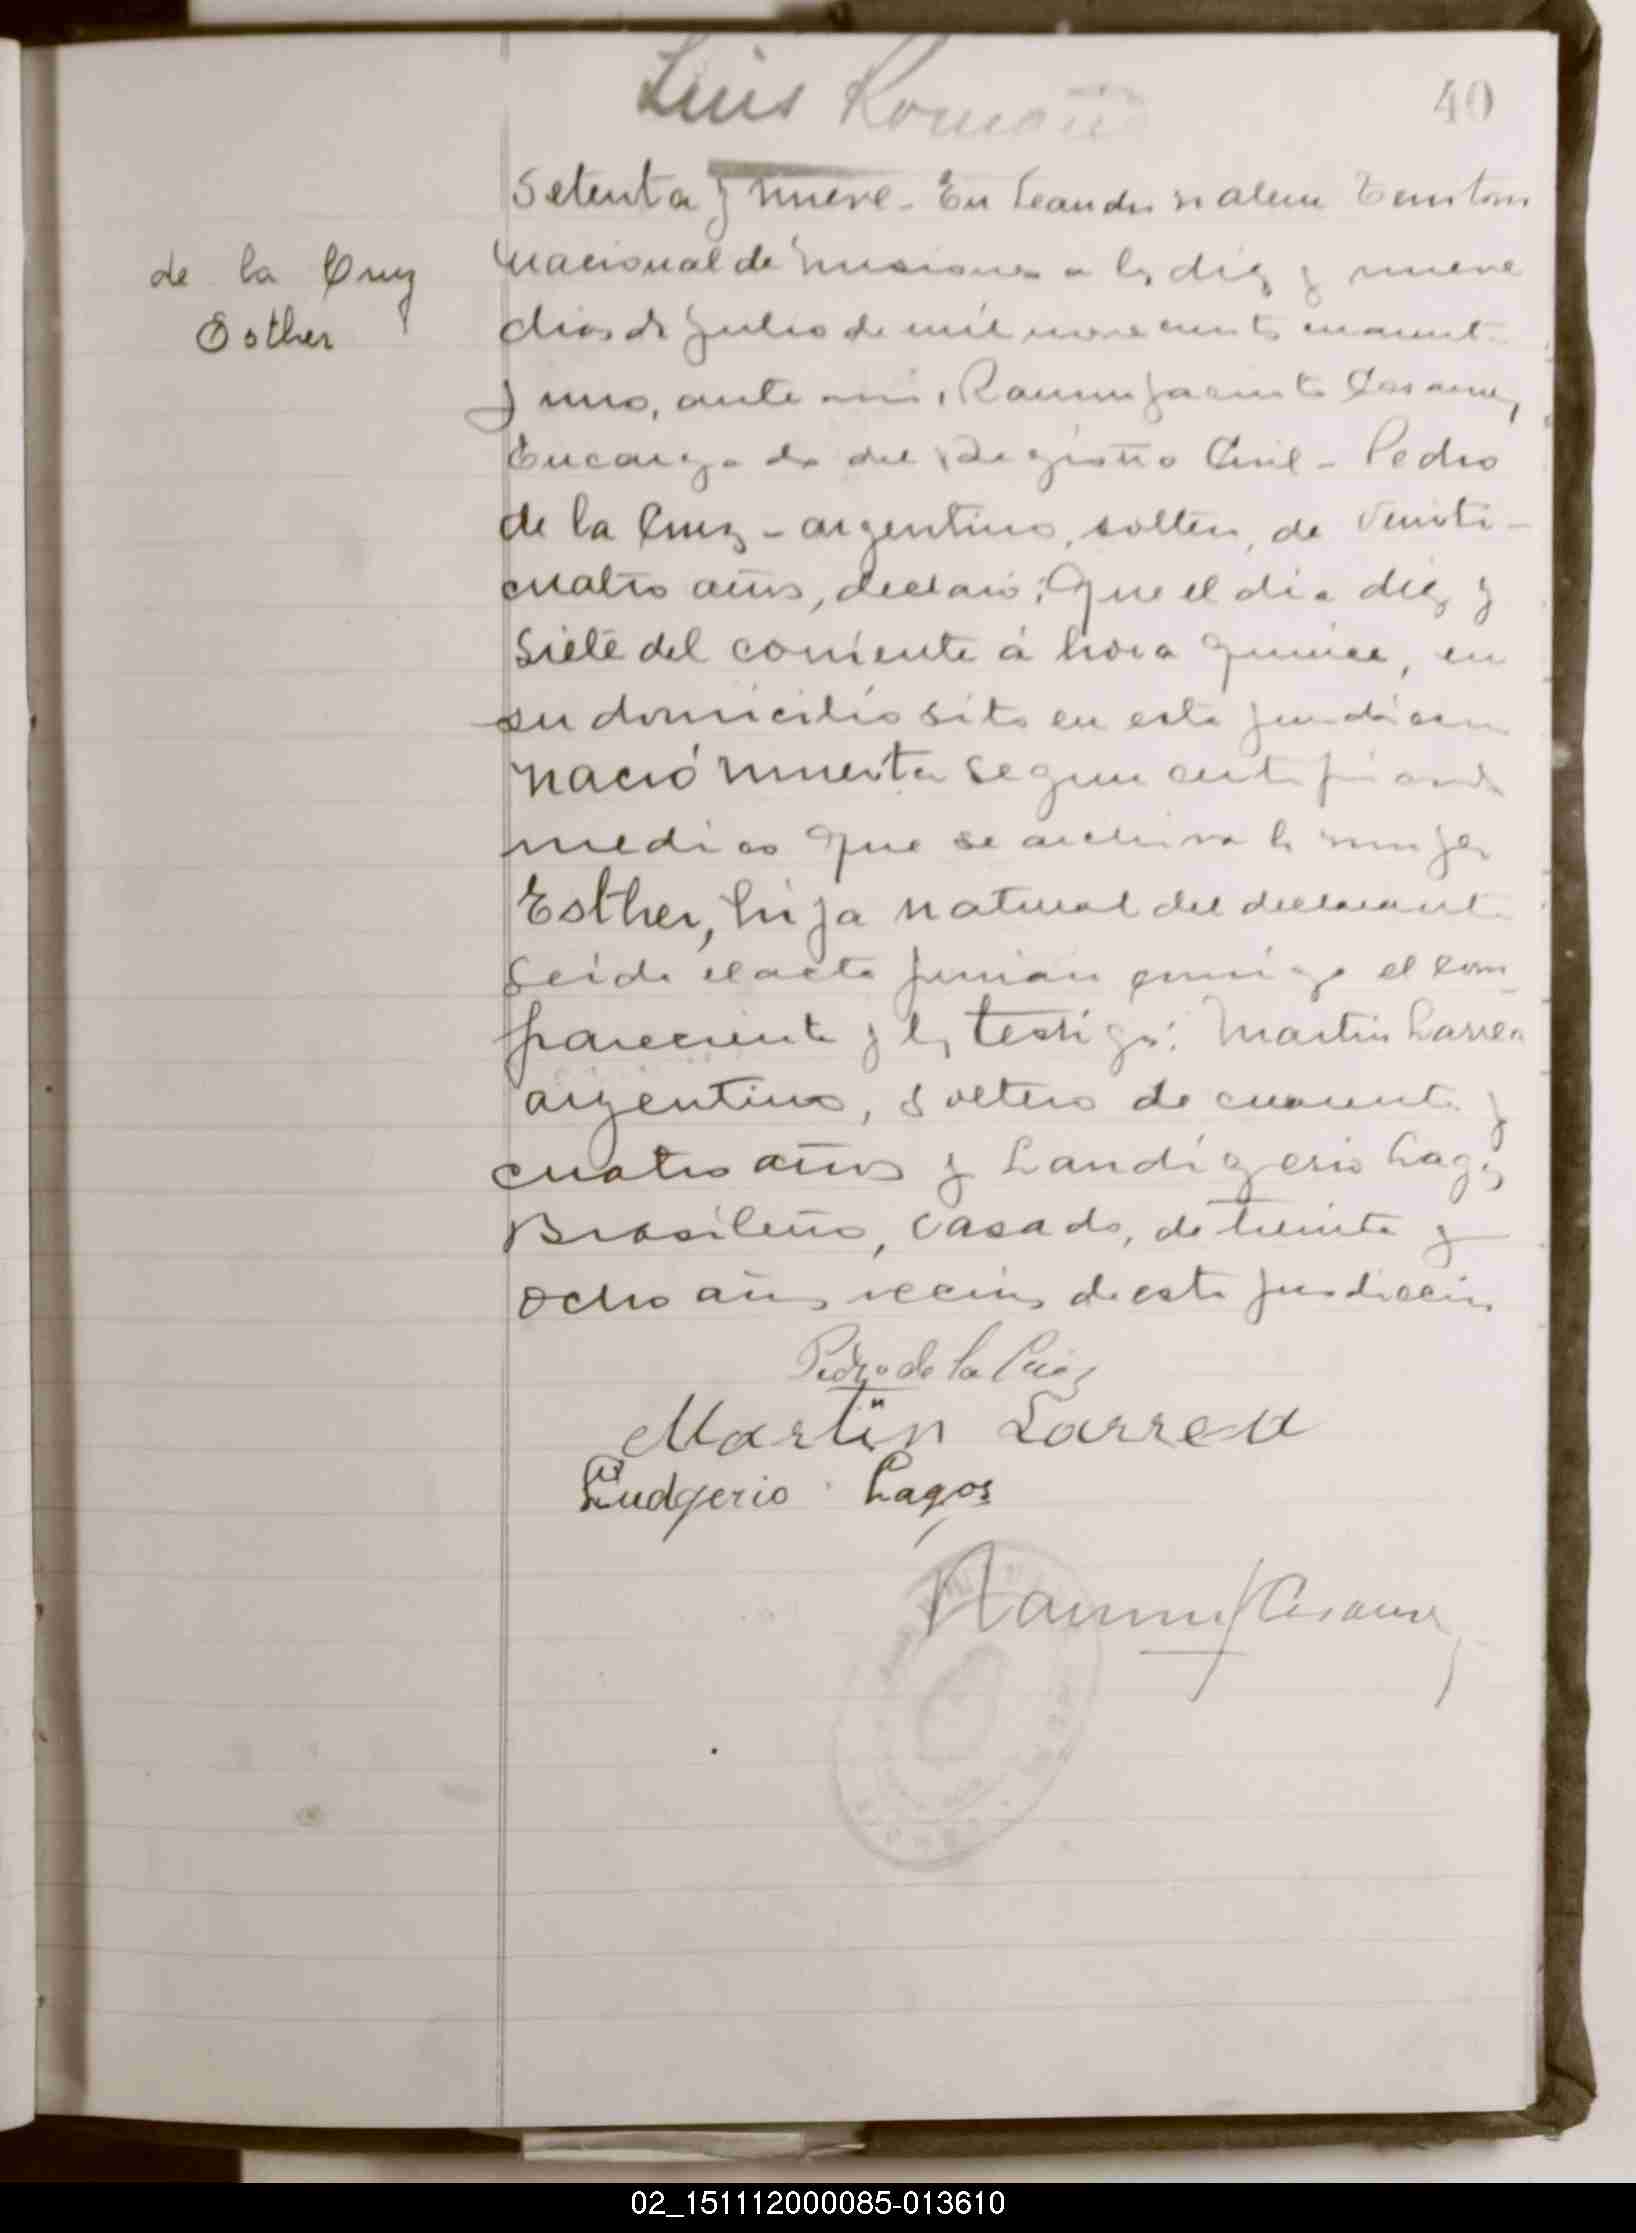 Luis Roman
40
Setenta y nueve - En Leandro N alem Territorio
de la Cruz
Esther
nacional de misiones a los diez y nueve
dias de Julio de mil novecientos cuarenta
y uno, ante mi, Ramon Jacinto
Encargado del Registro Civil - Pedro
de la Cruz - argentino, soltero, de veinti-
cuatro años, declaró: Que el dia diez y
siete del corriente á hora quince, en
su domicilio sito en esta jurisdiccion
nació muerta segun certificado
medico que se archiva la mujer
Esther, hija natural del declarante
Leida el acta firman conmigo el com
pareciente y los testigos: Martin Larrea
argentino, soltero de cuarenta y
cuatro años y Landigerio Lagos,
Brasileño, casado, de treinta y
ocho años vecinos de esta jurisdiccion
Pedro de la Cruz
Martin Larrea
Ludgerio Lagos
02_151112000085-013610